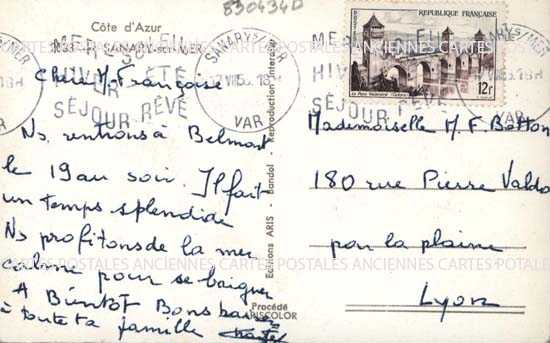 830434D
Côte d'Azur
SANARY-sur-MER
MER SOLEIL
HIVER ÉTÉ
SÉJOUR RÊVÉ
SANARY S/MER
VAR
RÉPUBLIQUE FRANÇAISE
POSTES
Le Pont Valentré (Cahors)
12F
Chère M. Françoise
Ns. rentrons à Belmont
le 19 au soir. Il fait
un temps splendide
Ns profitons de la mer
calme pour se baigner
A Bientôt Bons baisers
à toute ta famille
Editions ARIS - Bandol - Reproduction Interdite
Procédé
ARISCOLOR
Mademoiselle M. F. Betton
180 rue Pierre Valdo
par la plaine
Lyon
CARTES POSTALES ANCIENNES CARTES POSTALES ANCIENNES CARTES POSTALES